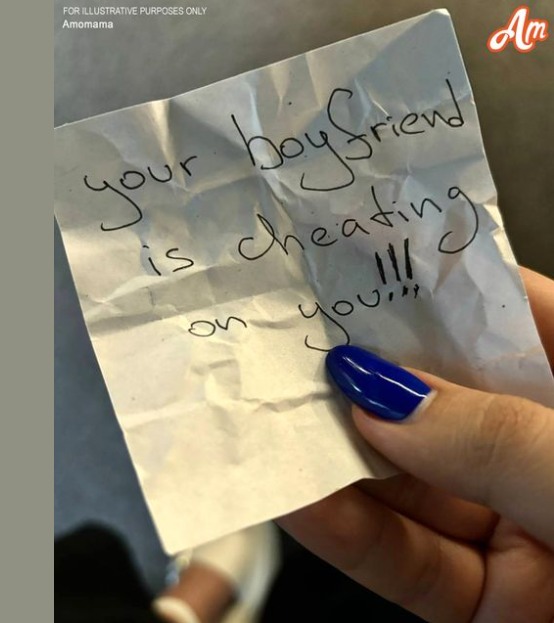 FOR ILLUSTRATIVE PURPOSES ONLY
Amomama
Am
your boyfriend
is cheating
on you!!!